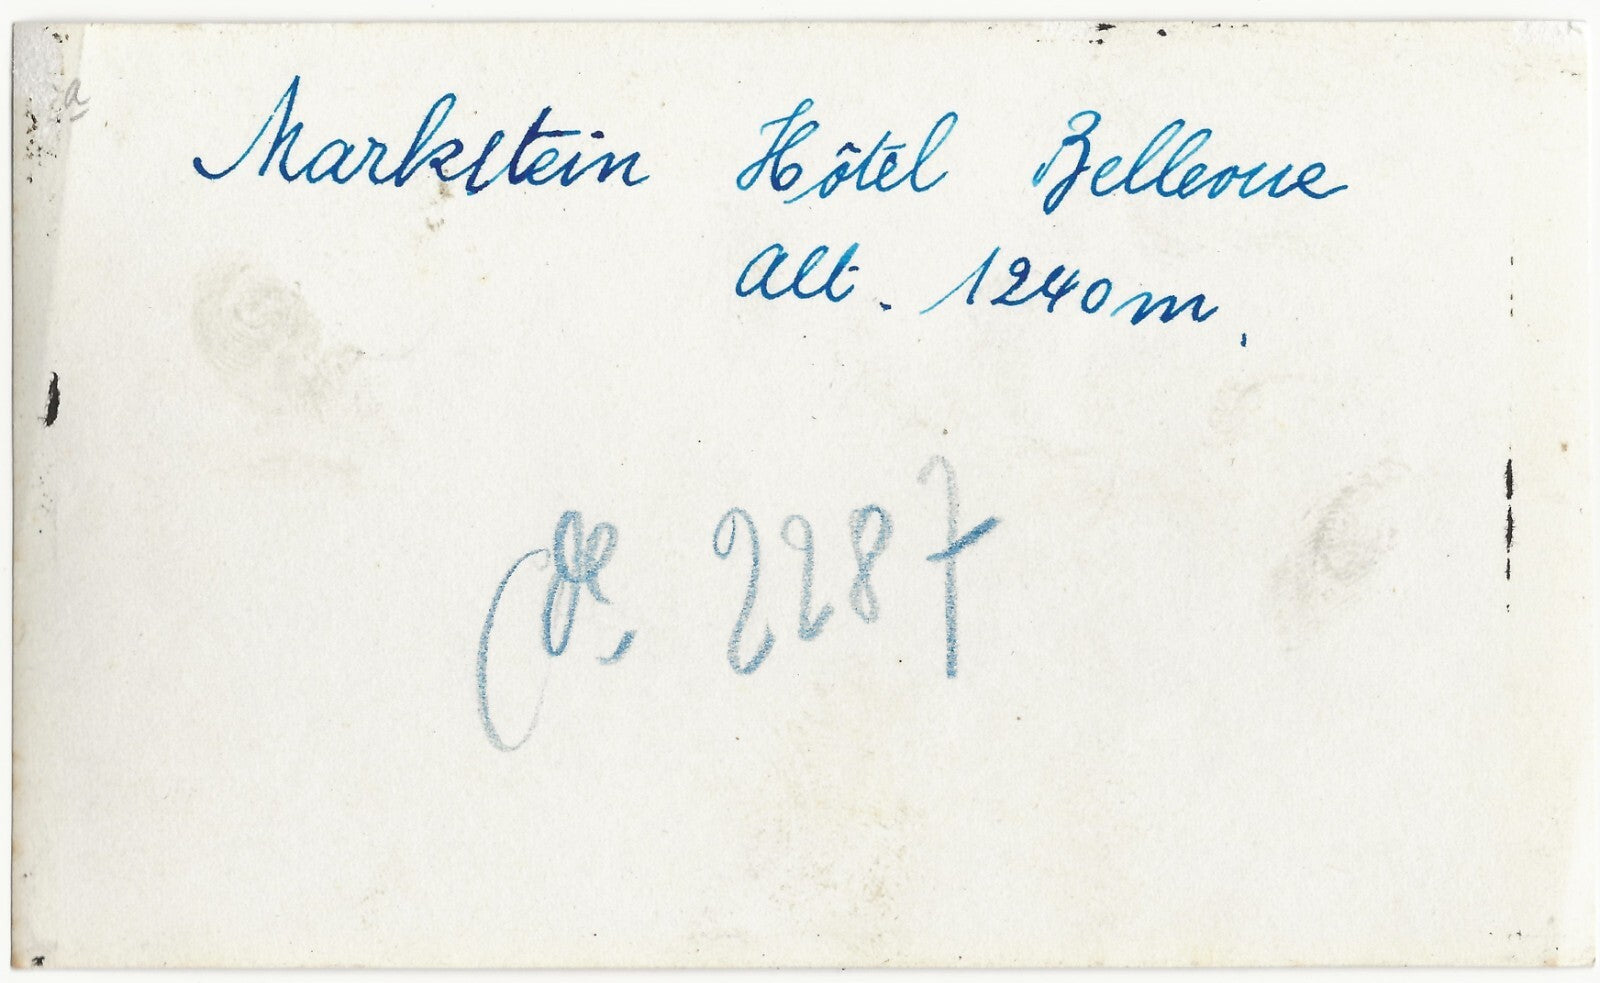 Markstein Hôtel Bellevue
Alt. 1240m.
2287